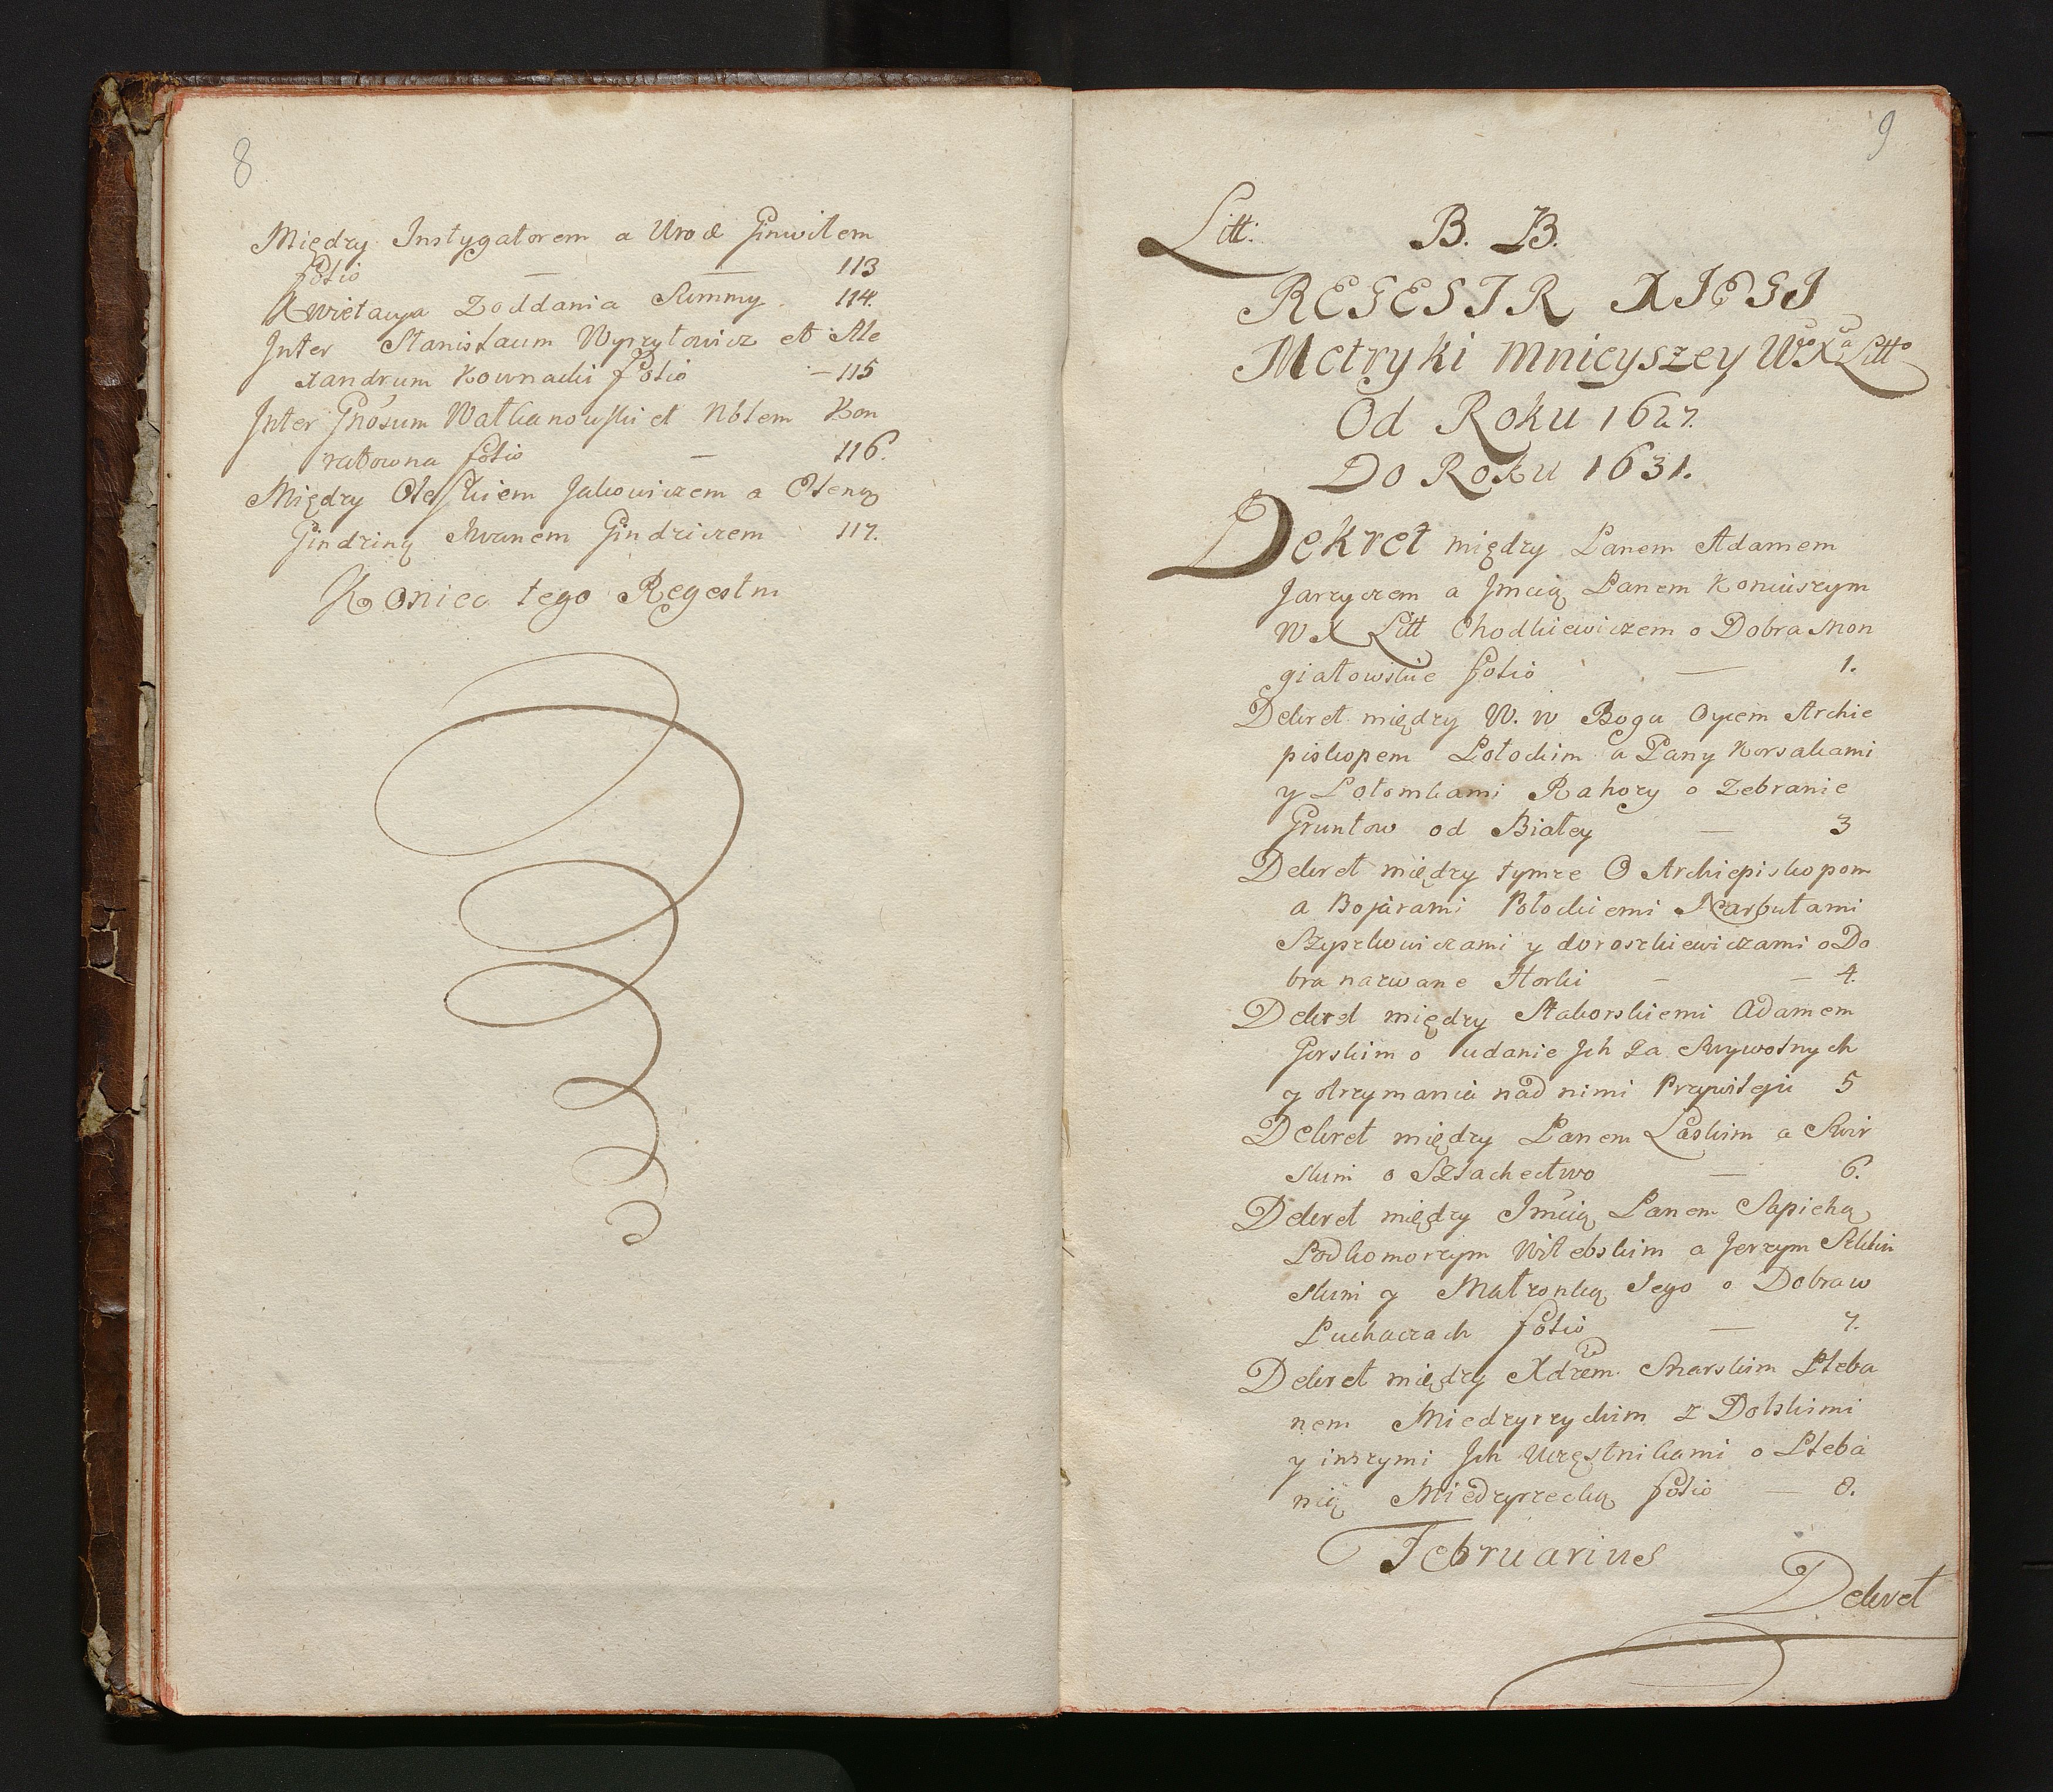 8
Między Instygatorem a Urod Ginwiłem
folio — — 113
Kwietacya Zoddania Summy 114.
Inter Stanisłaum Wyrzytowicz et Ale
xandrum Kownacki folio — 115
Inter Gnosum Watkanowski et Nblem Kon
ratowna folio — 116.
Między Oleszkiem Jakowiczem a Oleną
Gindziną Iwanem Gindziczem 117.
Koniec tego Regestru
9
Litt: B. B.
REGESTR XIĘGI
Metryki Mnieyszey Wo Xa Litto
Od Roku 1627.
Do Roku 1631.
Dekret między Panem Adamem
Jarzyczem a Jmcią Panem Koniuszym
W X Litt Chodkiewiczem o Dobra Mon
giałowskie folio — 1.
Dekret między W. w Bogu Oycem Archie
piskopem Połockim a Pany Korsakami
y Potomkami Rahozy o Zebranie
Gruntow od Białey — 3
Dekret między tymze O Archiepiskopom
a Bojarami Połockiemi Narbutami
Szypiłowiczami y doroszkiewiczami o Do
bra nazwane Horki — — 4.
Dekret między Staborskiemi Adamem
Gorskim o udanie Jch za Swywolnych
y otrzymania nad nimi Przywileju 5
Dekret między Panem Laskim a Swir
skim o Szlachectwo — 6.
Dekret między Jmcią Panem Sapiehą
Podkomorzym Witebskim a Jerzym
skim y Małzonką Jego o Dobra w
Puhaczach folio — 7.
Dekret między Xdzem Snarskim Pleba
nem Miedzyrzyckim z Dolskimi
y inszymi Jch Uczęstnikami o Pleba
nią Miedzyrzecką folio — 8.
Februarius
Dekret